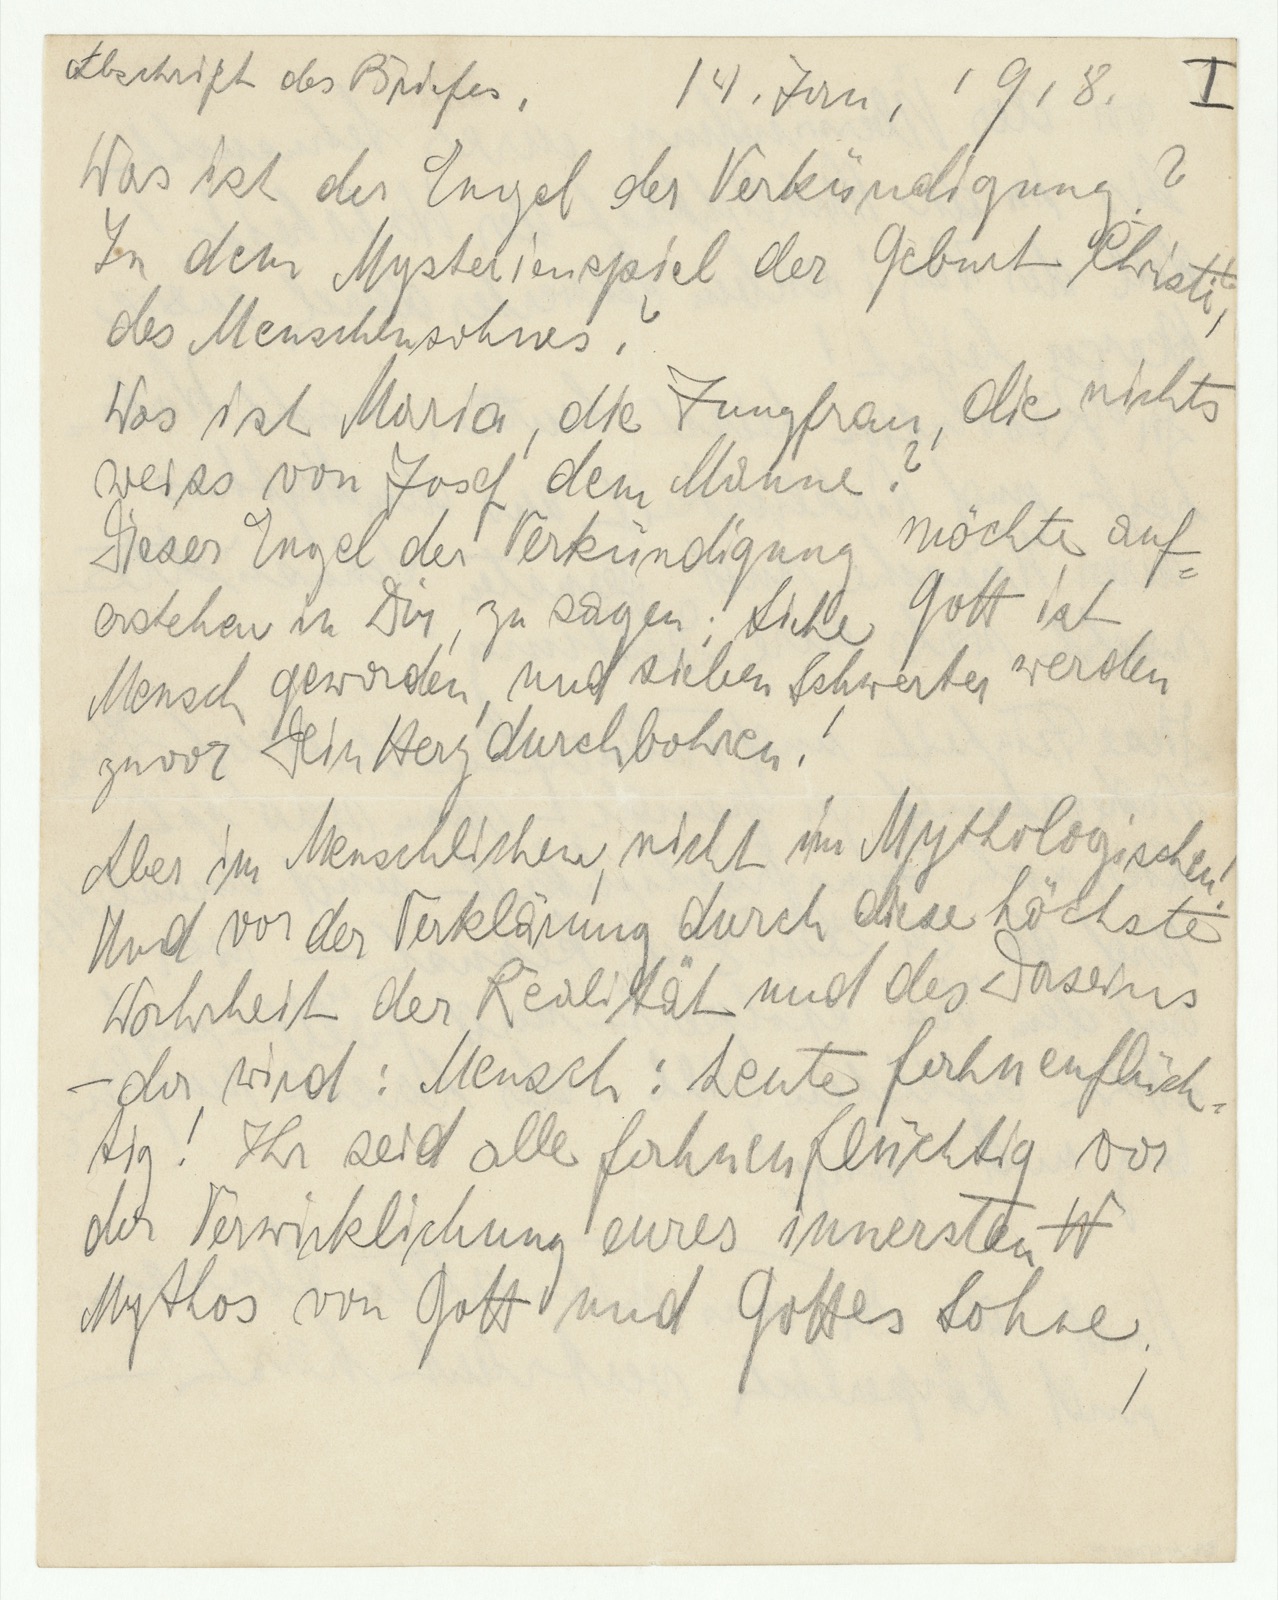 Abschrift des Briefes, 14. Jan, 1918. I
Was ist der Engel der Verkündigung?
In dem Mysterienspiel der Geburt Christi,
des Menschensohnes?
Was ist Maria, die Jungfrau, die nichts
weiss von Josef dem Manne?
Dieser Engel der Verkündigung möchte auf=
erstehen in Dir, zu sagen: Siehe Gott ist
Mensch geworden, und sieben Schwerter werden
zuvor Dein Herz durchbohren!
Aber im Menschlichen, nicht im Mythologischen!
Und vor der Verklärung durch diese höchste
Wahrheit der Realität und des Daseins
– der wird: Mensch: heute fahnenflüch=
tig! Ihr seid alle fahnenflüchtig vor
der Verwirklichung eures innersten
Mythos von Gott und Gottes Sohne,